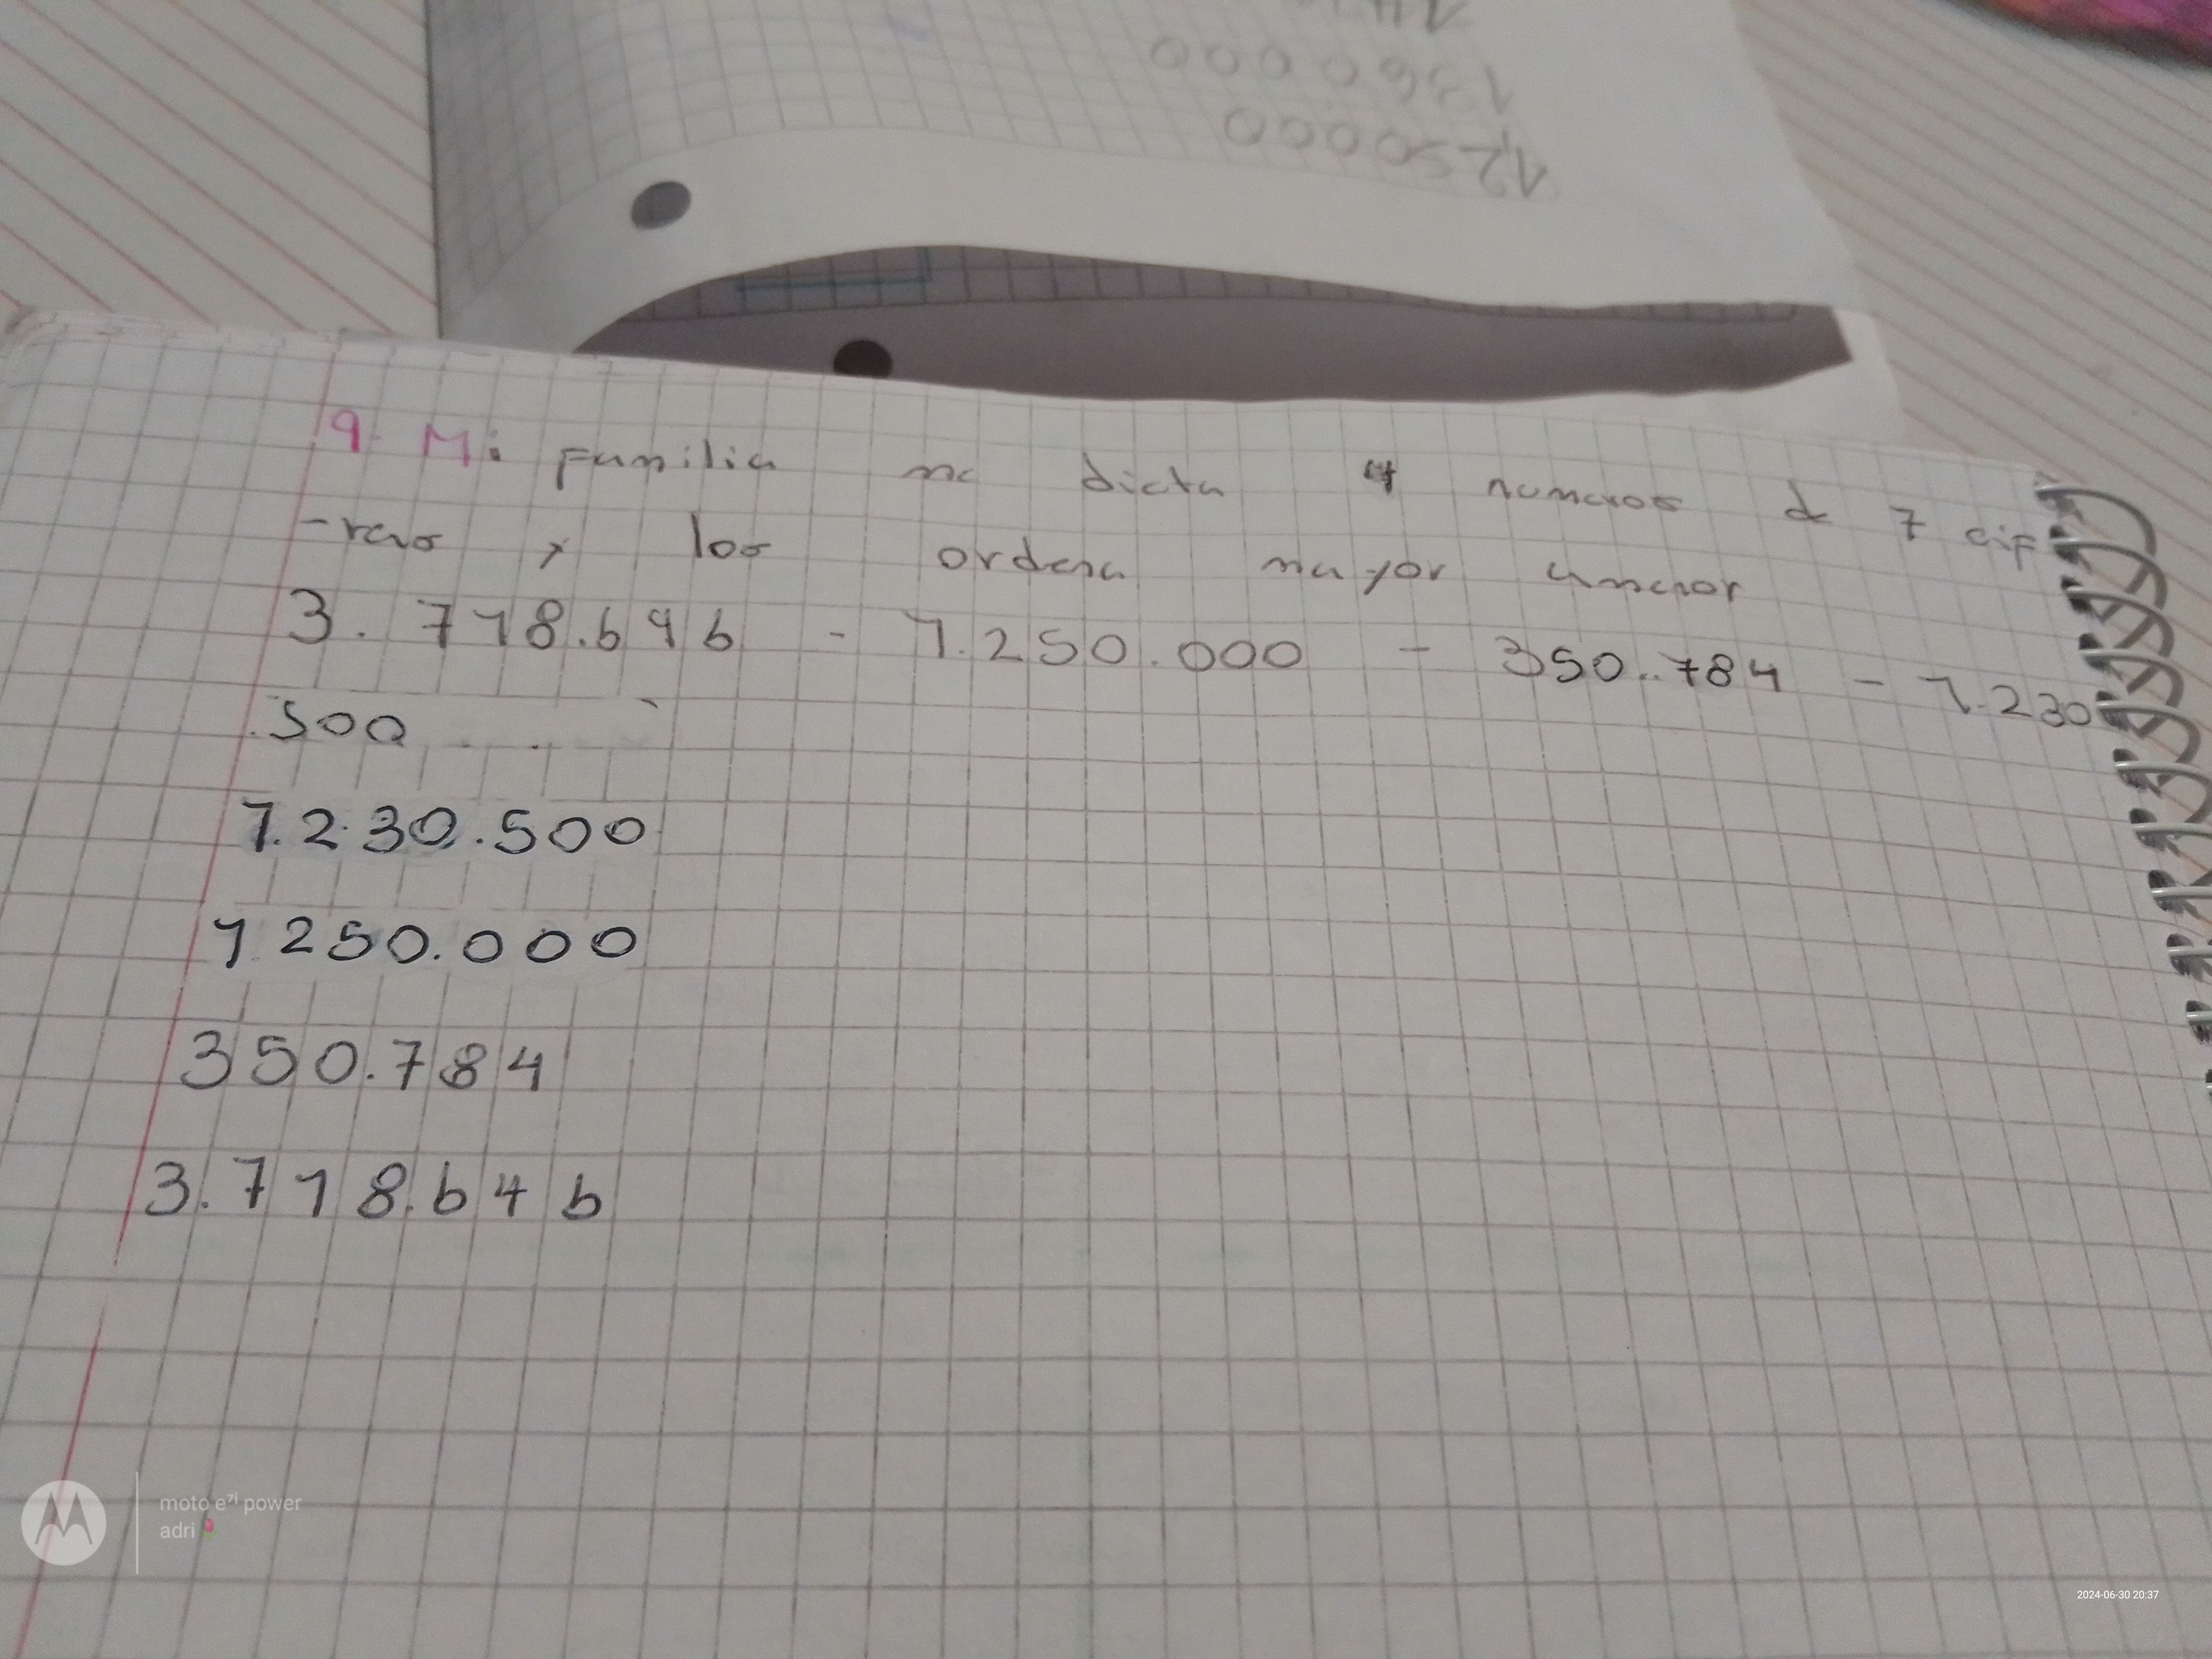 000
1360000
1250000
9 Mi familia me dicta 4 numeros de 7 cif
-ras y los ordena mayor a menor
3.718.646 - 1.250.000 - 350.784 - 1.230
.500
1.230.500
1250.000
350.784
3.718.646
moto e⁷ⁱ power
adri
2024-06-30 20:37